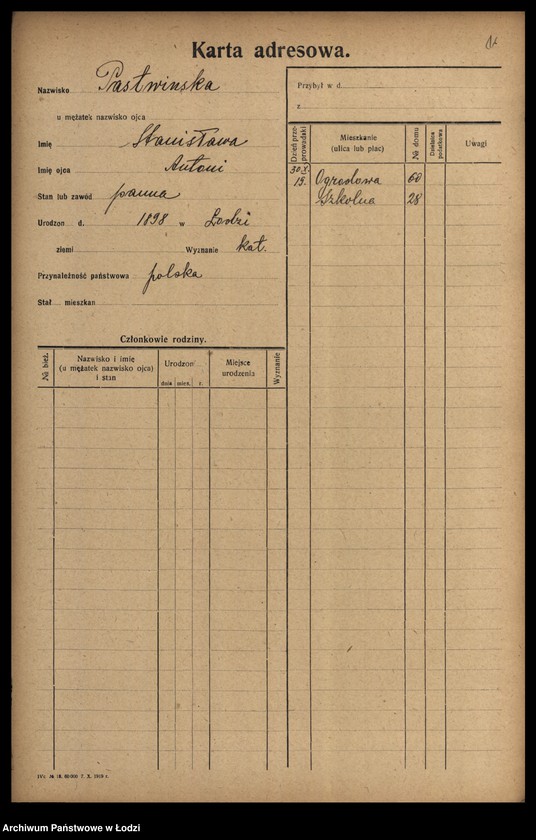 Karta adresowa.
Nazwisko Pastwinska
u mężatek nazwisko ojca
Imię Stanisława
Imię ojca Antoni
Stan lub zawód panna
Urodzon d. 1898 w Łodzi
ziemi Wyznanie kat.
Przynależność państwowa polska
Stał mieszkan
Przybył w d.
z
Dzień przeprowadzki Mieszkanie (ulica lub plac) № domu Dzielnica podatkowa Uwagi
Ogrodowa 60
19. Szkolna 28
Członkowie rodziny.
№ bież. Nazwisko i imię (u mężatek nazwisko ojca) i stan Urodzon dnia mies. r. Miejsce urodzenia Wyznanie
7. X. 1919 r.
Archiwum Państwowe w Łodzi